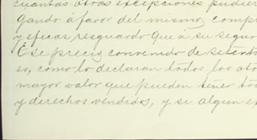 cuantas otras excepciones pudier
gando á favor del mismo, comp
y eficas resguardo que á su segur
Ese precio convenido de setent
so, como lo declaran todos los oto
mayor valor que pueden tener los
y derechos vendidos, y si algun ex